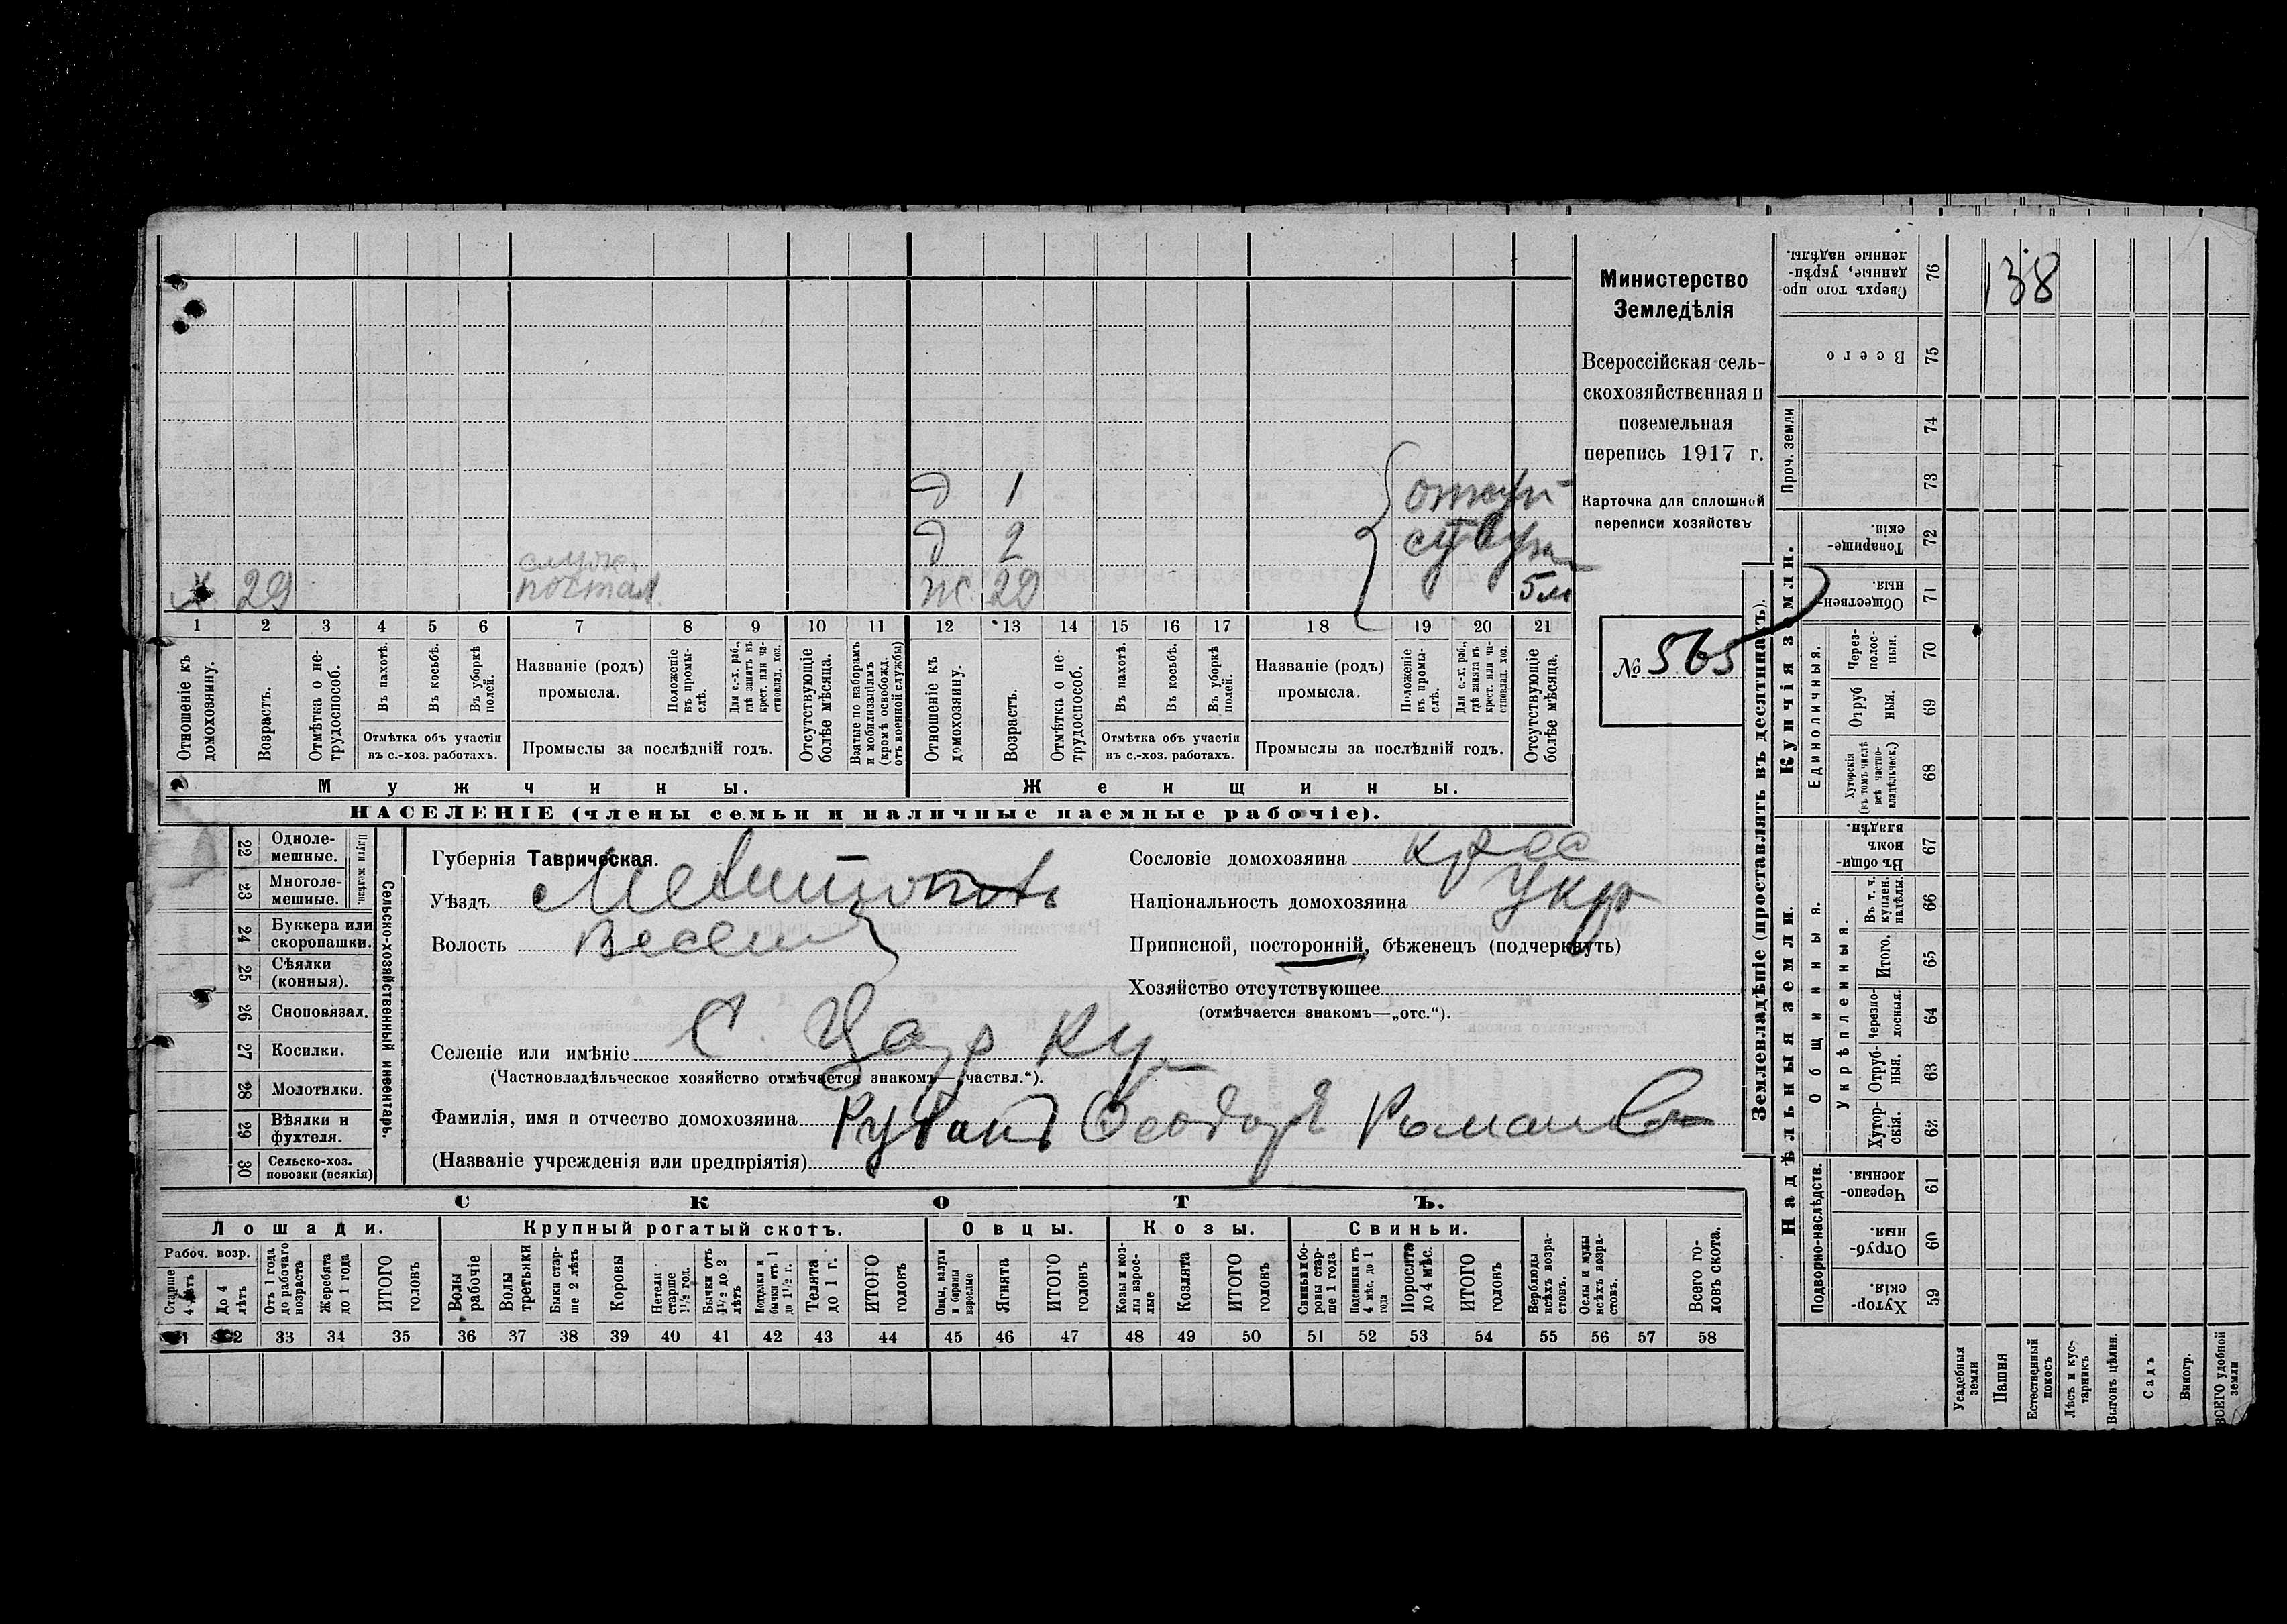 д 1
д 2
х 29 служ. ж. 29 5 м
почтал.
1 2 3 4 5 6 7 8 9 10 11 12 13 14 15 16 17 18 19 20 21
Отношеніе къ домохозяину.
Возрастъ.
Отмѣтка о не-трудоспособ.
Въ пахотѣ.
Въ косьбѣ.
Въ уборкѣ полей.
Отмѣтка объ участіи
въ с.-хоз. работахъ.
Названіе (родъ)
промысла.
Положеніе въ промы-слѣ.
Для с.-х. раб., гдѣ занятъ въ крест. или ча-стновлад. хоз.
Промыслы за послѣдній годъ.
Отсутствующіе болѣе мѣсяца.
Взятые по наборамъ и мобилизаціямъ (кромѣ освобожд. отъ военной службы)
Отношеніе къ домохозяину.
Возрастъ.
Отмѣтка о не-трудоспособ.
Въ пахотѣ.
Въ косьбѣ.
Въ уборкѣ полей.
Отмѣтка объ участіи
въ с.-хоз. работахъ.
Названіе (родъ)
промысла.
Положеніе въ промы-слѣ.
Для с.-х. раб., гдѣ занята въ крест. или ча-стновлад. хоз.
Промыслы за послѣдній годъ.
Отсутствующіе болѣе мѣсяца.
Мужчины. Женщины.
НАСЕЛЕНІЕ (члены семьи и наличные наемные рабочіе).
Министерство
Земледѣлія
Всероссійская сель-
скохозяйственная и
поземельная
перепись 1917 г.
Карточка для сплошной
переписи хозяйствъ
№ 565
22 Одноле-мешные.
23 Многоле-мешные.
Плуги желѣзн.
24 Буккера или скоропашки.
25 Сѣялки (конныя).
26 Сноповязал.
27 Косилки.
28 Молотилки.
29 Вѣялки и фухтеля.
30 Сельско-хоз. повозки (всякія)
Сельско-хозяйственный инвентарь.
Губернія Таврическая.
Уѣздъ Мелитополь
Волость Весел
Селеніе или имѣніе С. Цар Ку
(Частновладѣльческое хозяйство отмѣчается знакомъ—„частвл.“).
Фамилія, имя и отчество домохозяина Рубанъ Феодоръ Романов
(Названіе учрежденія или предпріятія)
Сословіе домохозяина крес
Національность домохозяина Укр
Приписной, посторонній, бѣженецъ (подчеркнуть)
Хозяйство отсутствующее
(отмѣчается знакомъ—„отс.“).
СКОТЪ.
Лошади. Крупный рогатый скотъ. Овцы. Козы. Свиньи.
Рабоч. возр.
Старше 4 лѣтъ
До 4 лѣтъ
Отъ 1 года до рабочаго возраста
Жеребята до 1 года
ИТОГО головъ
Волы рабочіе
Волы третьяки
Быки стар-ше 2 лѣтъ
Коровы
Нетели старше 1½ год.
Бычки отъ 1½ до 2 лѣтъ
Подтелки и бычки отъ 1 до 1½ г.
Телята до 1 г.
ИТОГО головъ
Овцы, валухи и бараны взрослые
Ягнята
ИТОГО головъ
Козы и коз-лы взрос-лые
Козлята
ИТОГО головъ
Свиньи и бо-ровы стар-ше 1 года
Подсвинки отъ 4 мѣс. до 1 года
Поросята до 4 мѣс.
ИТОГО головъ
Верблюды всѣхъ возра-стовъ.
Ослы и мулы всѣхъ возра-стовъ.
Всего го-ловъ скота.
33 34 35 36 37 38 39 40 41 42 43 44 45 46 47 48 49 50 51 52 53 54 55 56 57 58
Землевладѣніе (проставлять въ десятинахъ).
Купчія земли.
Надѣльныя земли.
Проч. земли
Единоличныя.
Общинныя.
Укрѣпленныя.
Подворно-наслѣдств.
Сверхъ того про-данные, укрѣп-ленные надѣлы. 76
138
Всего 75
74
73
Товарище-скія. 72
Обществен-ныя 71
Через-полос-ныя. 70
Отруб-ныя. 69
Хуторскія (въ томъ числѣ всѣ частно-владѣльческ.) 68
Въ общин-номъ владѣн. 67
Въ т. ч. куплен. надѣлы. 66
Итого. 65
Черезпо-лосныя. 64
Отруб-ныя. 63
Хутор-скія. 62
Черезпо-лосныя. 61
Отруб-ныя. 60
Хутор-скія. 59
Усадебныя земли
Пашня
Естественный покосъ
Лѣсъ и кус-тарникъ
Выгонъ цѣлин.
Садъ
Виногр.
ВСЕГО удобной земли